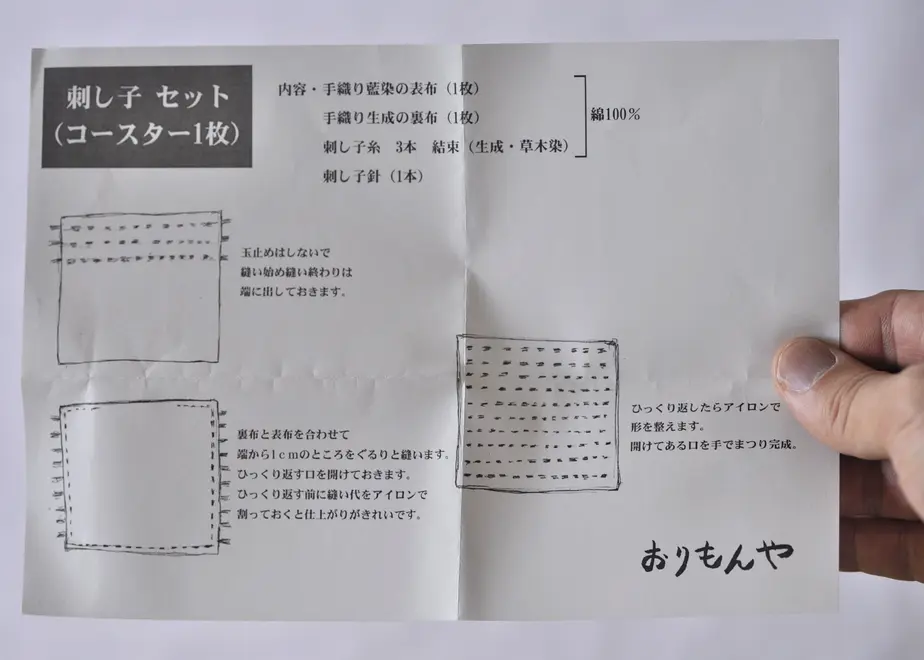 刺し子 セット
（コースター1枚）
内容・手織り藍染の表布（1枚）
手織り生成の裏布（1枚）
刺し子糸　3本　結束（生成・草木染）
刺し子針（1本）
綿100％
玉止めはしないで
縫い始め縫い終わりは
端に出しておきます。
裏布と表布を合わせて
端から1cmのところをぐるりと縫います。
ひっくり返す口を開けておきます。
ひっくり返す前に縫い代をアイロンで
割っておくと仕上がりがきれいです。
ひっくり返したらアイロンで
形を整えます。
開けてある口を手でまつり完成。
おりもんや